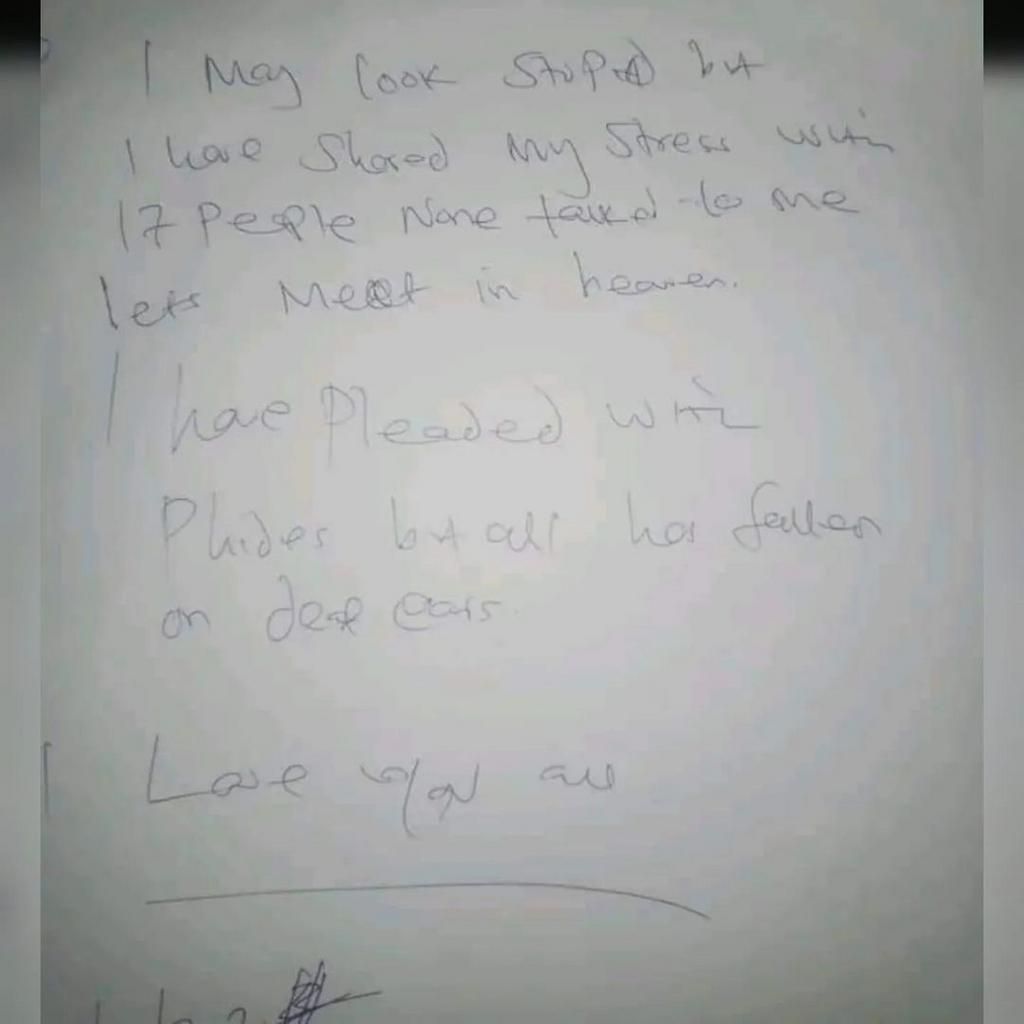 I May look Stupid but
I have Shared My Stress with
17 People None talked to me
lets Meet in heaven.
I have Pleaded with
Phides but all has fallen
on deaf ears.
I Love you all